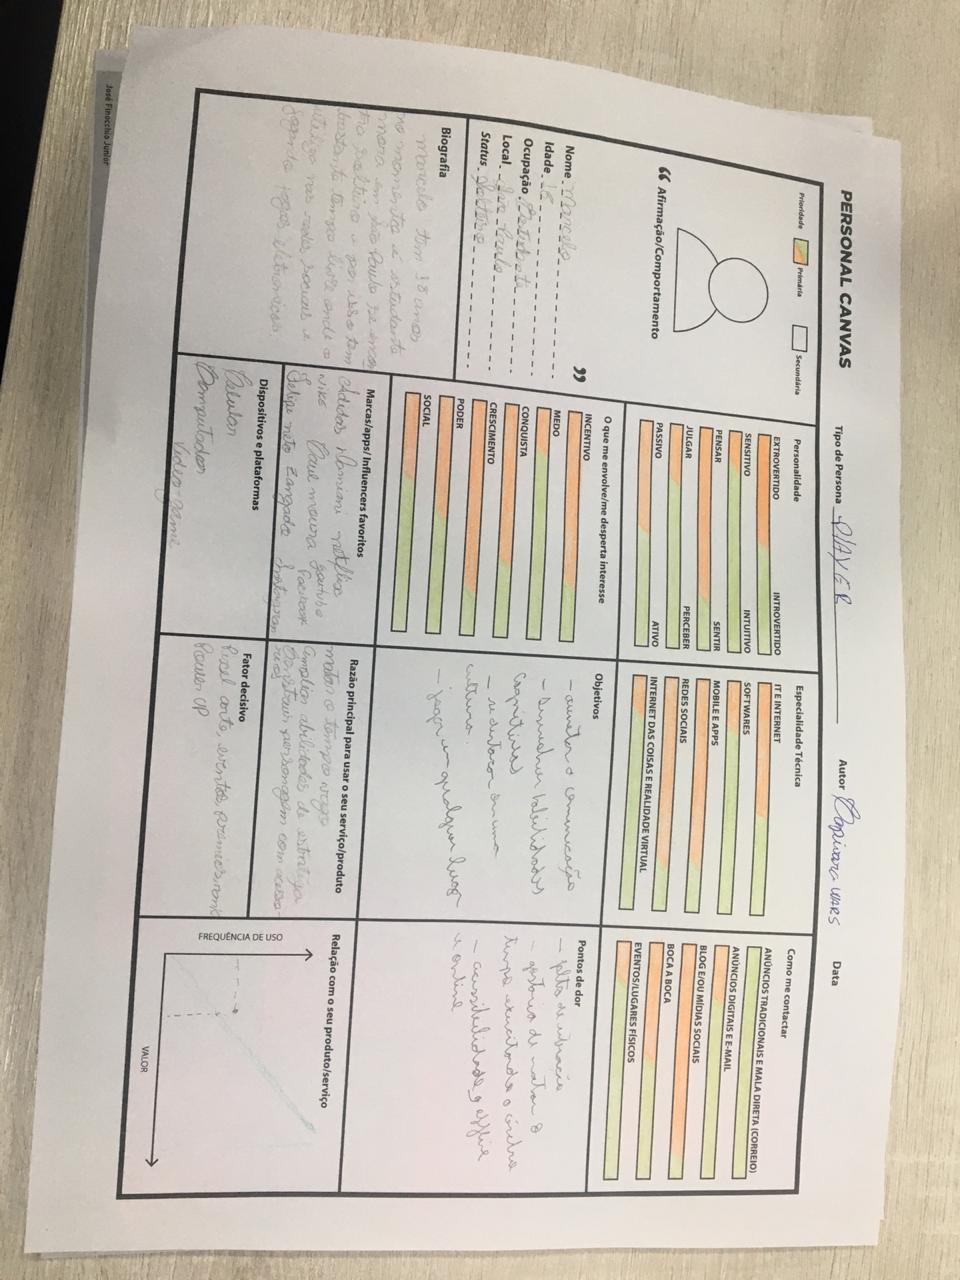 PERSONAL CANVAS
Tipo de Persona PLAYER
Autor Capivara WARS
Data
Prioridade
Primária
Secundária
“ Afirmação/Comportamento ”
Nome. Marcelo
Idade. 18
Ocupação Estudante
Local. São Paulo
Status. Solteiro
Biografia
Marcelo tem 18 anos
no momento é estudante
mora em São Paulo
solteiro e por isso tem
bastante tempo livre onde o
utiliza nas redes sociais e
jogando jogos eletronicos.
Personalidade
EXTROVERTIDO INTROVERTIDO
SENSITIVO INTUITIVO
PENSAR SENTIR
JULGAR PERCEBER
PASSIVO ATIVO
O que me envolve/me desperta interesse
INCENTIVO
MEDO
CONQUISTA
CRESCIMENTO
PODER
SOCIAL
Marcas/apps/ Influencers favoritos
Adidas Damiani netflix
nike Raul moura youtube
Facebook
Felipe neto Zangado Instagram
Dispositivos e plataformas
Celular
Computador
Video-game
Especialidade Técnica
IT E INTERNET
SOFTWARES
MOBILE E APPS
REDES SOCIAIS
INTERNET DAS COISAS E REALIDADE VIRTUAL
Objetivos
- aumentar a comunicação
- Desenvolver habilidades
Cognitivas
- se destacar em uma
cultura.
- jogar em qualquer lugar
Razão principal para usar o seu serviço/produto
matar o tempo vago
ampliar abilidades de estratégia
Construir personagem com acesso-
rios
Fator decisivo
Pixel arte, eventos, prêmios, rank
Power up
Como me contactar
ANÚNCIOS TRADICIONAIS E MALA DIRETA (CORREIO)
ANÚNCIOS DIGITAIS E E-MAIL
BLOG E/OU MÍDIAS SOCIAIS
BOCA A BOCA
EVENTOS/LUGARES FÍSICOS
Pontos de dor
- falta de interação
- gostaria de matar o
tempo exercitando o cérebro
- acessibilidade offline
e online
Relação com o seu produto/serviço
FREQUÊNCIA DE USO
VALOR
José Finocchio Junior